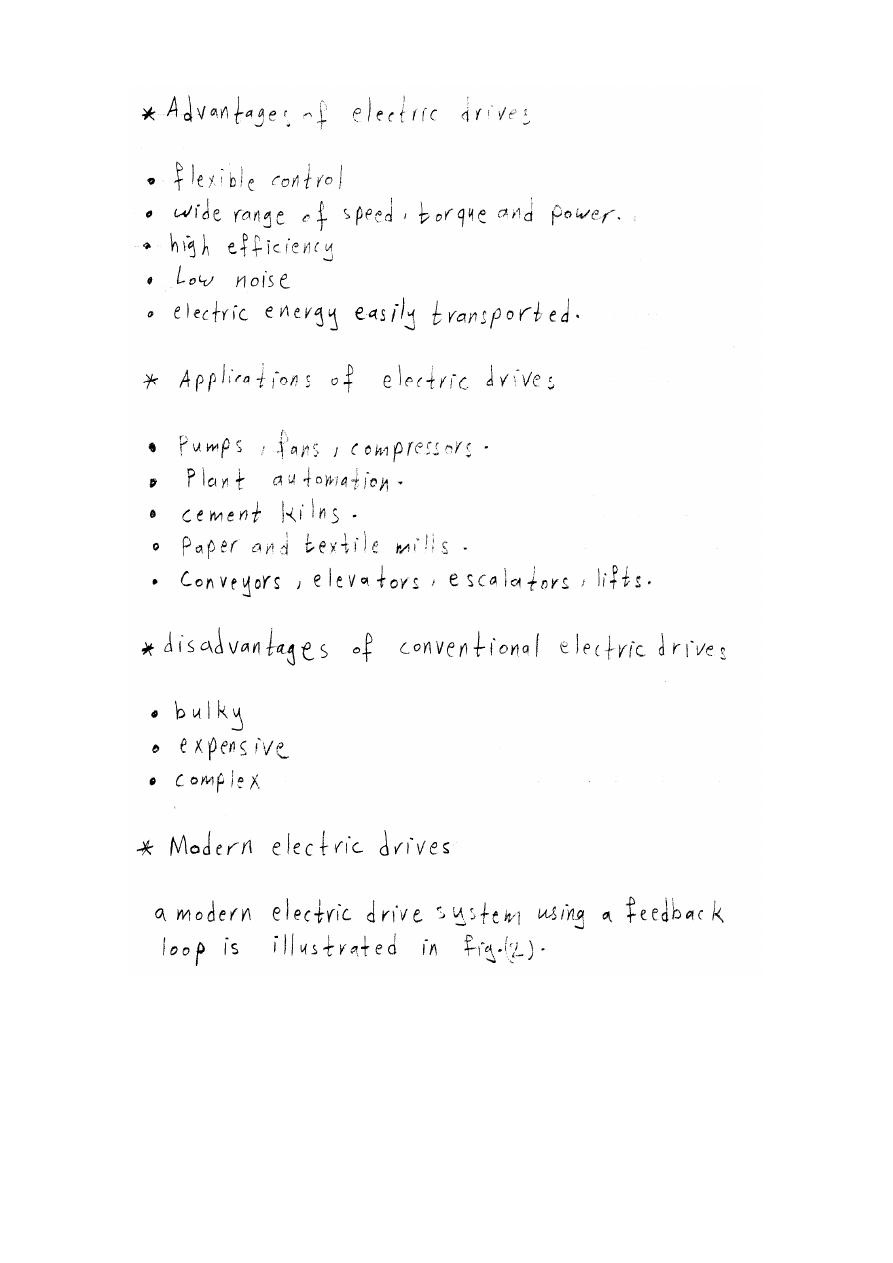 * Advantages of electric drives
• flexible control
• wide range of speed, torque and power.
• high efficiency
• Low noise
• electric energy easily transported.
* Applications of electric drives
• Pumps, fans, compressors.
• Plant automation.
• cement kilns.
• Paper and textile mills.
• Conveyors, elevators, escalators, lifts.
* disadvantages of conventional electric drives
• bulky
• expensive
• complex
* Modern electric drives
a modern electric drive system using a feedback
loop is illustrated in fig.(2).